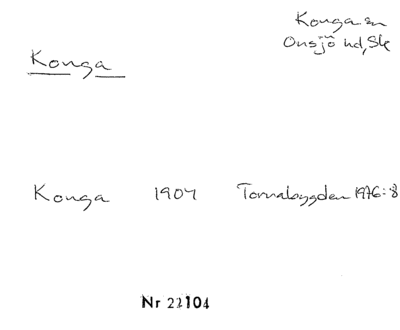 Konga sn
Onsjö hd, Sk
Konga
Konga 1907 Tornabygden 1976:8
Nr 22104